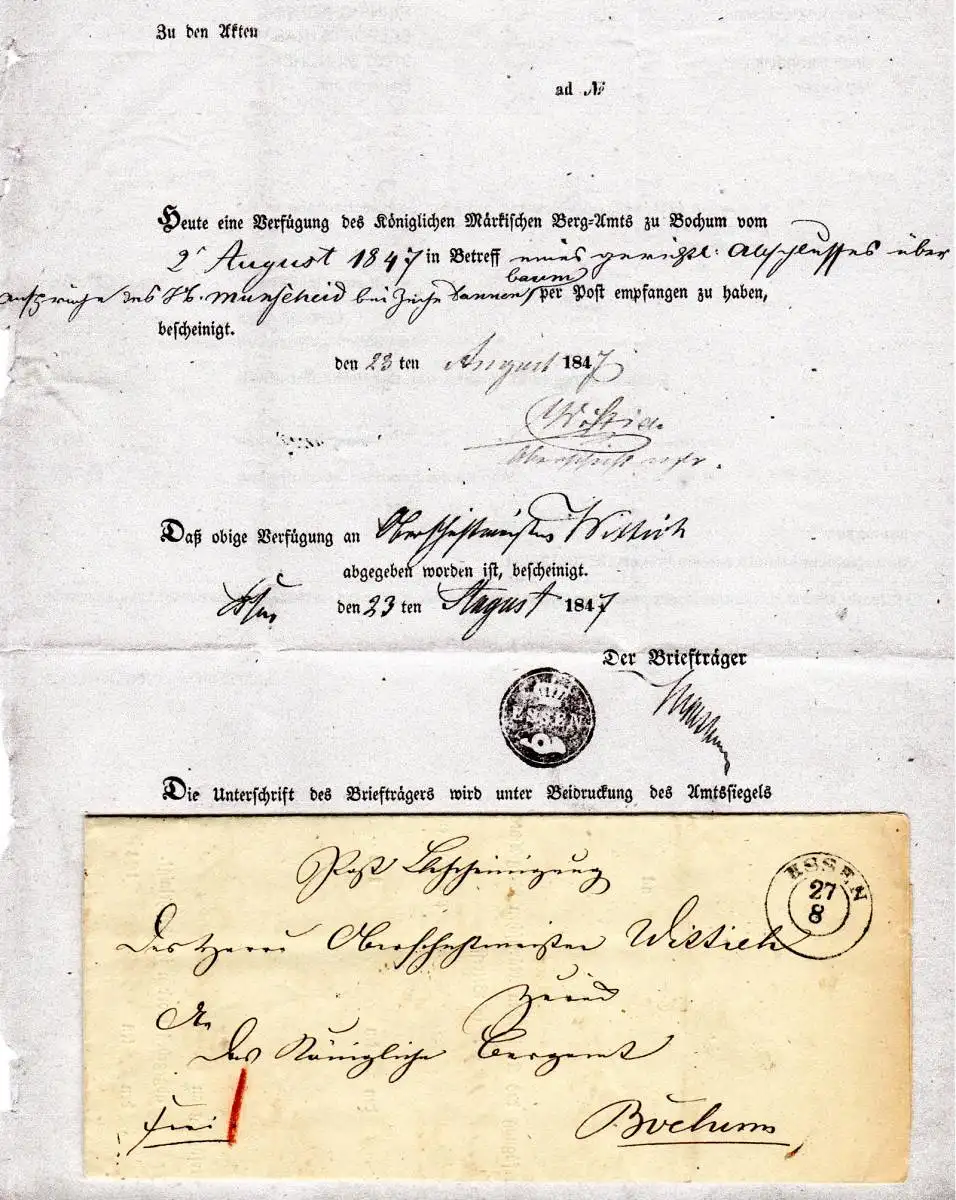 Zu den Akten
ad №
Heute eine Verfügung des Königlichen Märkischen Berg-Amts zu Bochum vom
2 August 1847 in Betreff eines gerichtl: Abschlusses über
baum
Ansprüche des H. Munscheid bei Zeche Dannen per Post empfangen zu haben,
bescheinigt.
den 23 ten August 1847
Wittich
Daß obige Verfügung an Oberschichtmeister Wittich
abgegeben worden ist, bescheinigt.
Essen den 23 ten August 1847
Der Briefträger
ESSEN
Die Unterschrift des Briefträgers wird unter Beidruckung des Amtssiegels
Post Bescheinigung
ESSEN
27
8
Des Herrn Oberschichtmeister Wittich
zurück
An
Das Königliche Bergamt
frei
Bochum